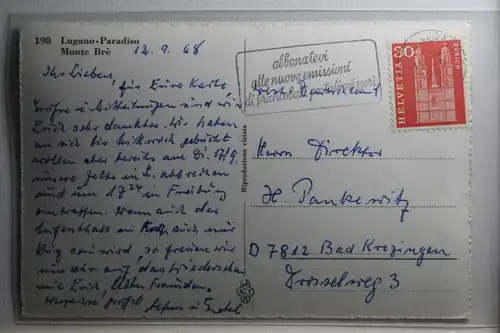 198 Lugano-Paradiso
Monte Brè
12.9.68
Ihr Lieben!
für Eure Karte
Grüße u. Mitteilungen sind wir
Euch sehr dankbar. Wir haben
an sich bis Mittwoch gebucht
wollen aber bereits am Di. 17/9.
unsere Zelte in L. abbrechen
und um 17 24 in Freiburg
eintreffen. Wenn auch der
Aufenthalt in auch nur
kurz sein wird so freuen wir
uns sehr auf das Wiedersehen
mit Euch, Freunden.
Herzlichst grüßt
Riproduzione vietata
abbonatevi
alle nuove emissioni
di francobolli
HELVETIA
30
ZÜRICH
Herrn Direktor
H. Pankewitz
D 7812 Bad Krozingen
Drosselweg 3